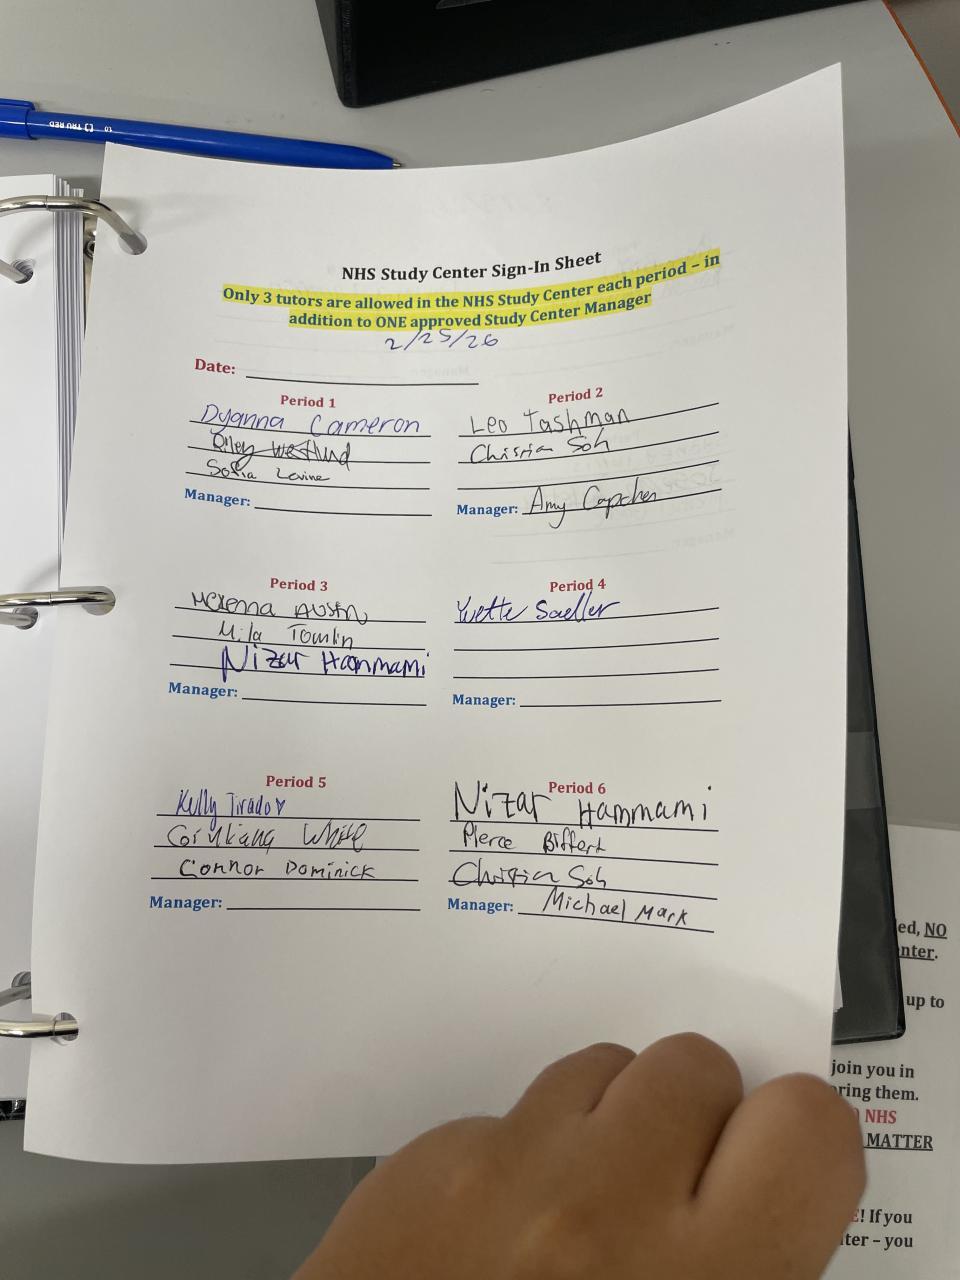 TRU RED
1.0
NHS Study Center Sign-In Sheet
Only 3 tutors are allowed in the NHS Study Center each period – in
addition to ONE approved Study Center Manager
2/25/26
Date:
Period 1
Dyanna Cameron
Riley Westlund
Sofia Levine
Manager:
Period 2
Leo Tashman
Christian Soh
Manager: Amy Capchen
Period 3
McKenna Austin
Mila Tomlin
Nizar Hammami
Manager:
Period 4
Yvette Saeller
Manager:
Period 5
Kelly Tirado
White
Connor Dominick
Manager:
Period 6
Nizar Hammami
Pierce Biffert
Christian Soh
Manager: Michael Mark
ed, NO
nter.
up to
join you in
oring them.
NHS
MATTER
E! If you
ter – you